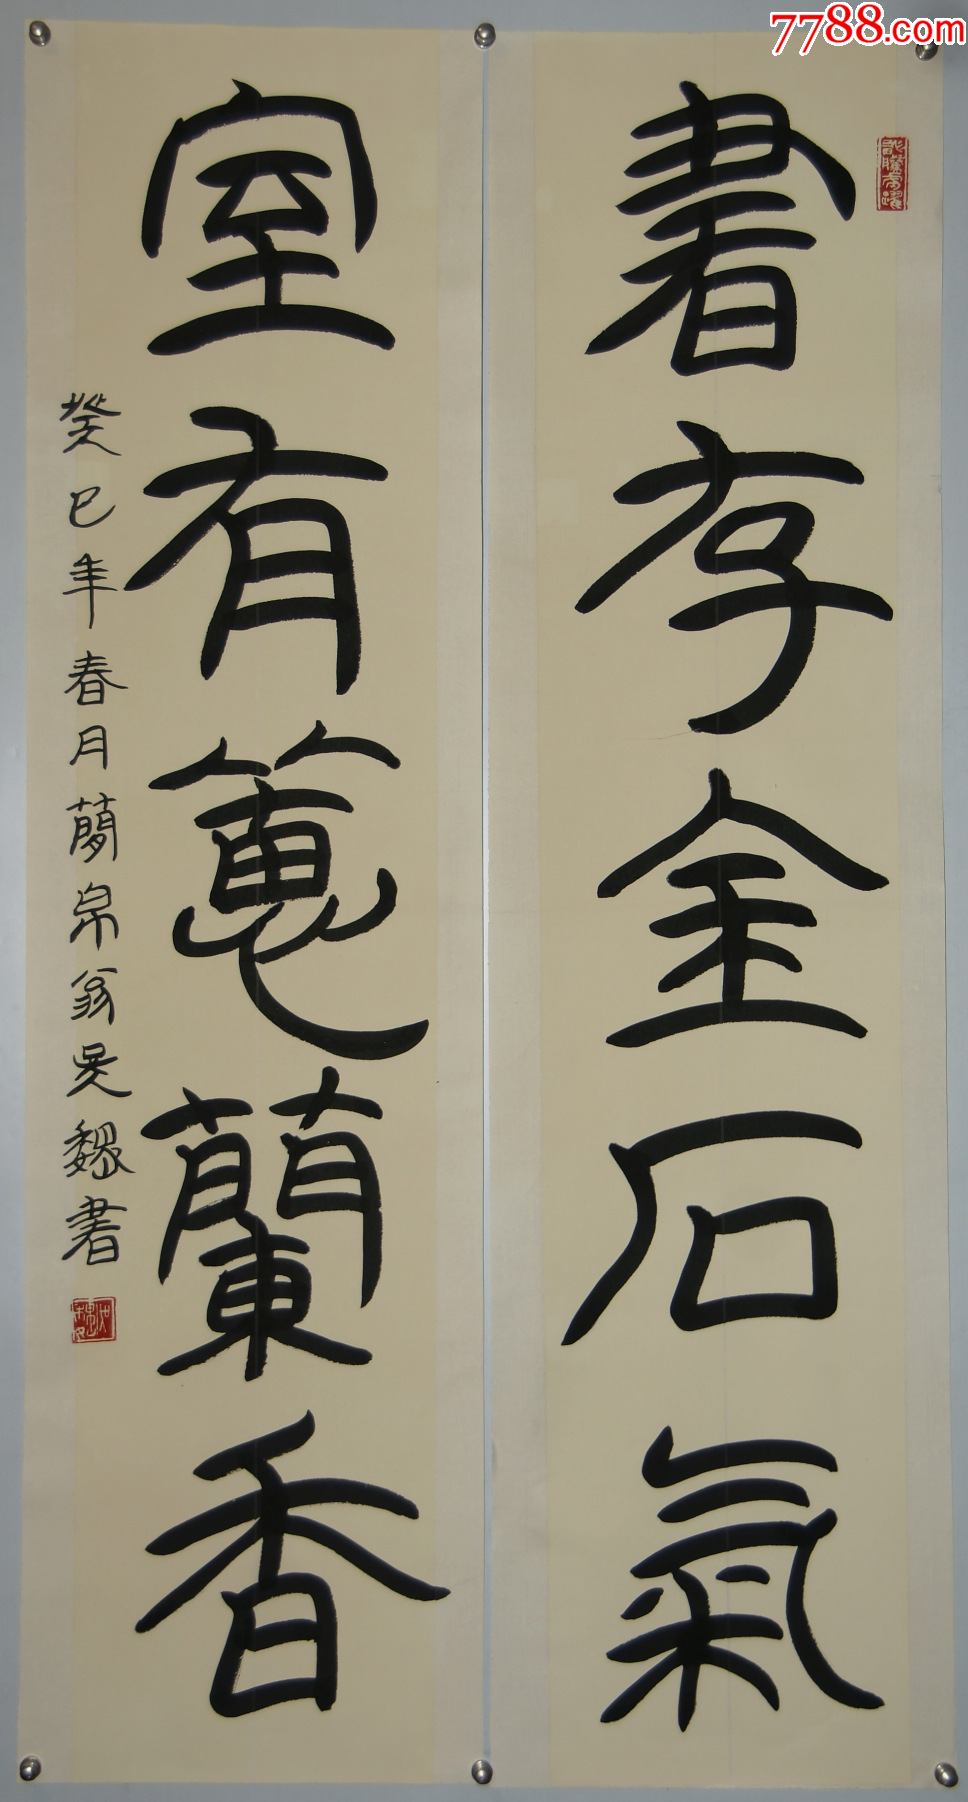 7788.com
書存金石氣
室有蕙蘭香
癸巳年春月蕳帛翁吳魏書